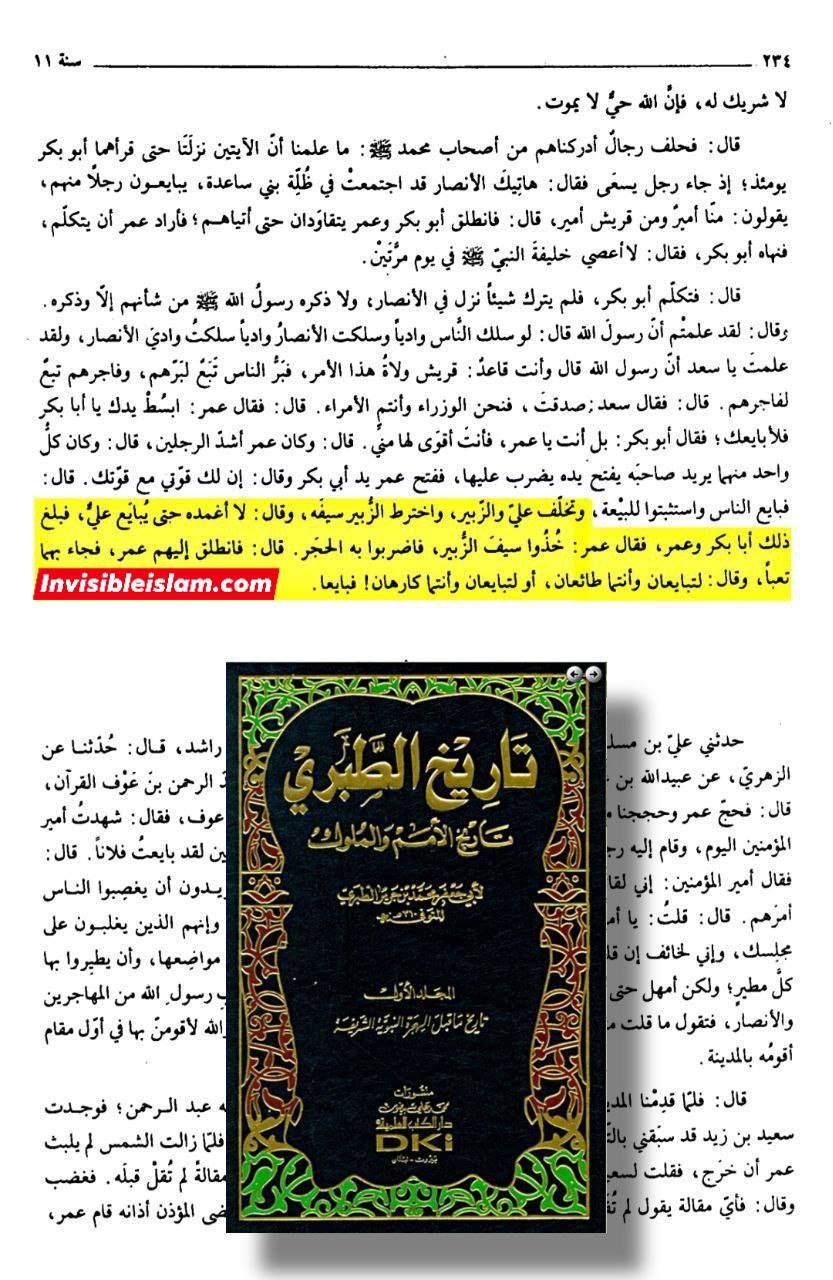 ٢٣٤ سنة ١١
لا شريك له، فإنَّ الله حيٌّ لا يموت.
قال: فحلف رجالٌ أدركناهم من أصحاب محمد ﷺ: ما علمنا أنّ الآيتين نزلَتَا حتى قرأهما أبو بكر
يومئذ؛ إذ جاء رجل يسعَى فقال: هاتِيكَ الأنصار قد اجتمعتْ في ظُلّة بني ساعدة، يبايعون رجلًا منهم،
يقولون: منّا أميرٌ ومن قريش أمير، قال: فانطلق أبو بكر وعمر يتقاوَدان حتى أتياهم؛ فأراد عمر أن يتكلّم،
فنهاه أبو بكر، فقال: لا أعصي خليفةَ النبيّ ﷺ في يوم مرَّتَيْن.
قال: فتكلّم أبو بكر، فلم يترك شيئاً نزل في الأنصار، ولا ذكره رسولُ الله ﷺ من شأنهم إلّا وذكره.
وقال: لقد علمتْم أنّ رسولَ الله قال: لو سلك النَّاس وادياً وسلكت الأنصارُ وادياً سلكتُ واديَ الأنصار، ولقد
علمتَ يا سعد أنّ رسول الله قال وأنت قاعدٌ: قريش ولاةُ هذا الأمر، فبَرُّ الناس تَبَعٌ لبَرّهم، وفاجرهم تبعٌ
لفاجرهم. قال: فقال سعد: صدقتَ، فنحن الوزراء وأنتم الأمراء. قال: فقال عمر: ابسُطْ يدك يا أبا بكر
فلأبايعك؛ فقال أبو بكر: بل أنت يا عمر، فأنتَ أقوَى لها منيّ. قال: وكان عمر أشدّ الرجلين، قال: وكان كلُّ
واحد منهما يريد صاحبَه يفتح يده يضرب عليها، ففتح عمر يد أبي بكر وقال: إن لك قوّتي مع قوّتك. قال:
فبايع الناس واستثبتوا للبيْعة، وتخلّف عليّ والزّبير، واخترط الزُّبير سيفَه، وقال: لا أغمده حتى يُبايَع عليٌّ، فبلغ
ذلك أبا بكر وعمر، فقال عمر: خُذُوا سيفَ الزُّبير، فاضربوا به الحجَر. قال: فانطلق إليهم عمر، فجاء بهما
تعباً، وقال: لتبايعان وأنتما طائعان، أو لتبايعان وأنتما كارهان! فبايعا.
Invisibleislam.com
تاريخ الطَّبَري
تاريخ الأمم والملوك
لأبي جعفر محمد بن جرير الطبري
المتوفى ٣١٠ هـ
المجلد الأول
تاريخ ما قبل الهجرة النبوية الشريفة
منشورات
محمد علي بيضون
دار الكتب العلمية
DKi
بيروت - لبنان
حدثني عليّ بن مسلـ راشد، قـال: حُدّثنـا عن
الزهريّ، عن عبيدالله بن الرحمن بنَ عَوْف القرآن،
قال: فحجّ عمر وحججنا عوف، فقال: شهدتُ أمير
المؤمنين اليوم، وقام إليه لقد بايعتُ فلاناً. قال:
فقال أمير المؤمنين: إني يريدون أن يغصِبوا الناس
أمرَهم. قال: قلتُ: يا وإنهم الذين يغلبون على
مجلسك، وإني لخائف إن مواضِعها، وأن يطيروا بها
كلَّ مطيرٍ؛ ولكن أمهل حتى رسول الله من المهاجرين
والأنصار، فتقول ما قلت لأقومنّ بها في أوّل مقام
أقومُه بالمدينة.
قال: فلمّا قدِمْنا عبد الـرحمن؛ فـوجدت
سعيد بن زيد قد سبَقني فلمّا زالت الشمس لم يلبث
عمر أن خرَج، فقلت مقالةً لم تُقلْ قبلَه. فغضب
وقال: فأيّ مقالة يقول لم المؤذن أذانه قام عمر،